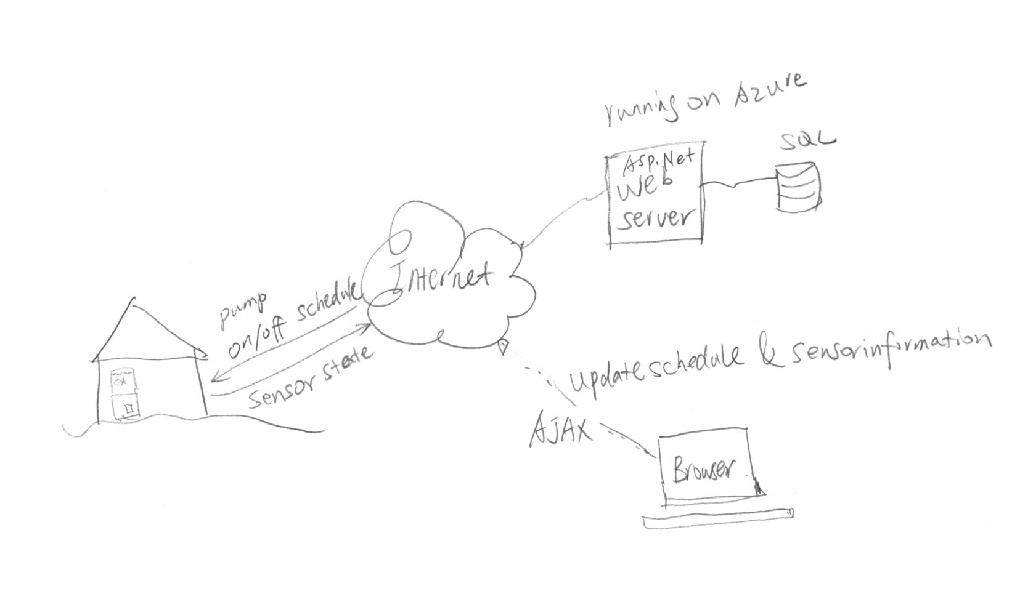 running on Azure
SQL
Asp.Net
Web
server
Internet
pump
on/off schedule
sensor state
update schedule & sensor information
AJAX
Browser